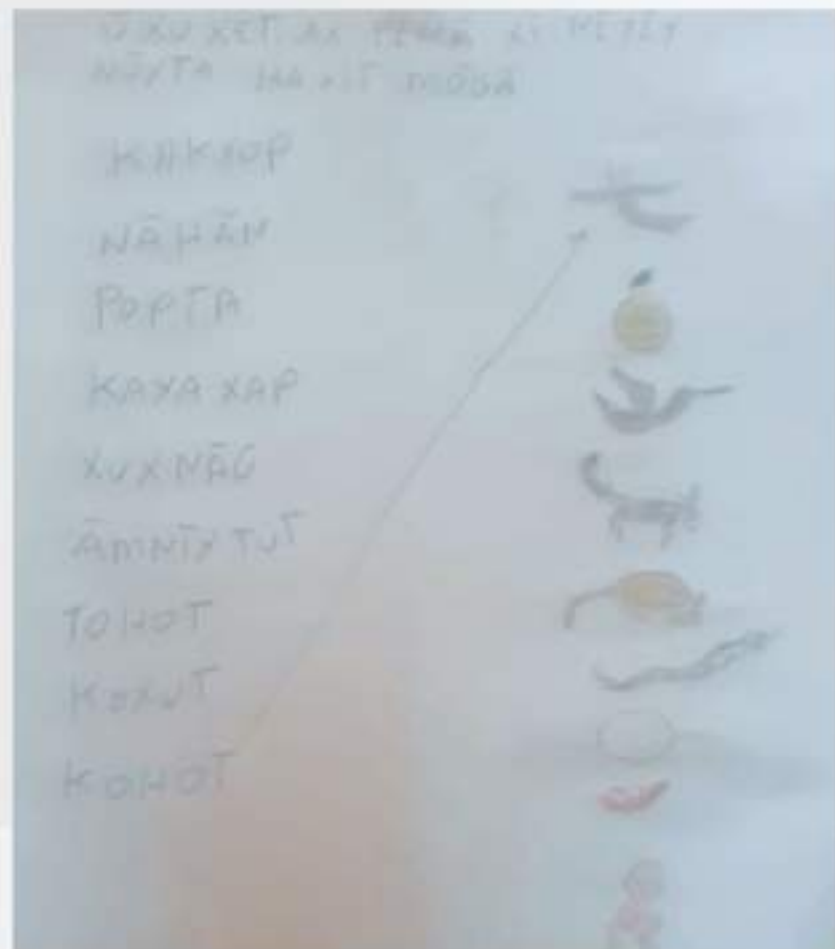 Ũ XU XET AX XI
HÃ XIT
KAKXOP
NÃHÃN
POPTA
KAXAXAP
XUXNÃG
ÃMNĨXTUT
TOHOT
KOXUT
KOHOT